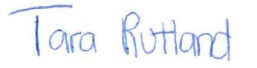 Tara Rutland